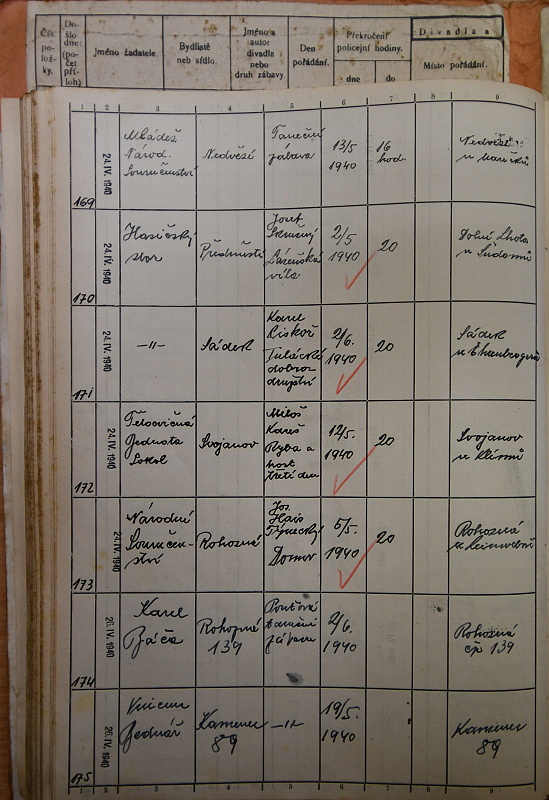 Čís. polož- ky.
Do- šlo dne: (po- čet pří- loh)
Jméno žadatele.
Bydliště neb sídlo.
Jméno a autor divadla nebo druh zábavy.
Den pořádání.
Překročení policejní hodiny.
dne
do
Divadla a
Místo pořádání.
1 2 3 4 5 6 7 8 9
169
24. IV. 1940
Mládež
Národ.
Souručenství
Nedvězí
Taneční
zábava
13/5
1940
16
hod.
Nedvězí
170
24. IV. 1940
Hasičský
sbor
Předměstí
Josef
Lázeňská
víla
2/5
1940
20
Dolní Lhota
171
24. IV. 1940
—„—
Sádek
Karel
Tulácké
dobro-
družství
2/6.
1940
20
Sádek
172
24. IV. 1940
Tělocvičná
Jednota
Sokol
Svojanov
Miloš
Kareš
Ryba a
host
třetí den
12/5.
1940
20
Svojanov
u Klímů
173
24. IV. 1940
Národní
Souručen-
ství
Rohozná
Jos.
Hais
Týnecký
Domov
5/5.
1940
20
Rohozná
174
26. IV. 1940
Karel
Báča
Rohozná
139
Pouťová
taneční
zábava
2/6.
1940
Rohozná
čp 139
175
26. IV. 1940
Bednář
Kamenec
89
—„—
19/5.
1940
Kamenec
89
1 2 3 4 5 6 7 8 9